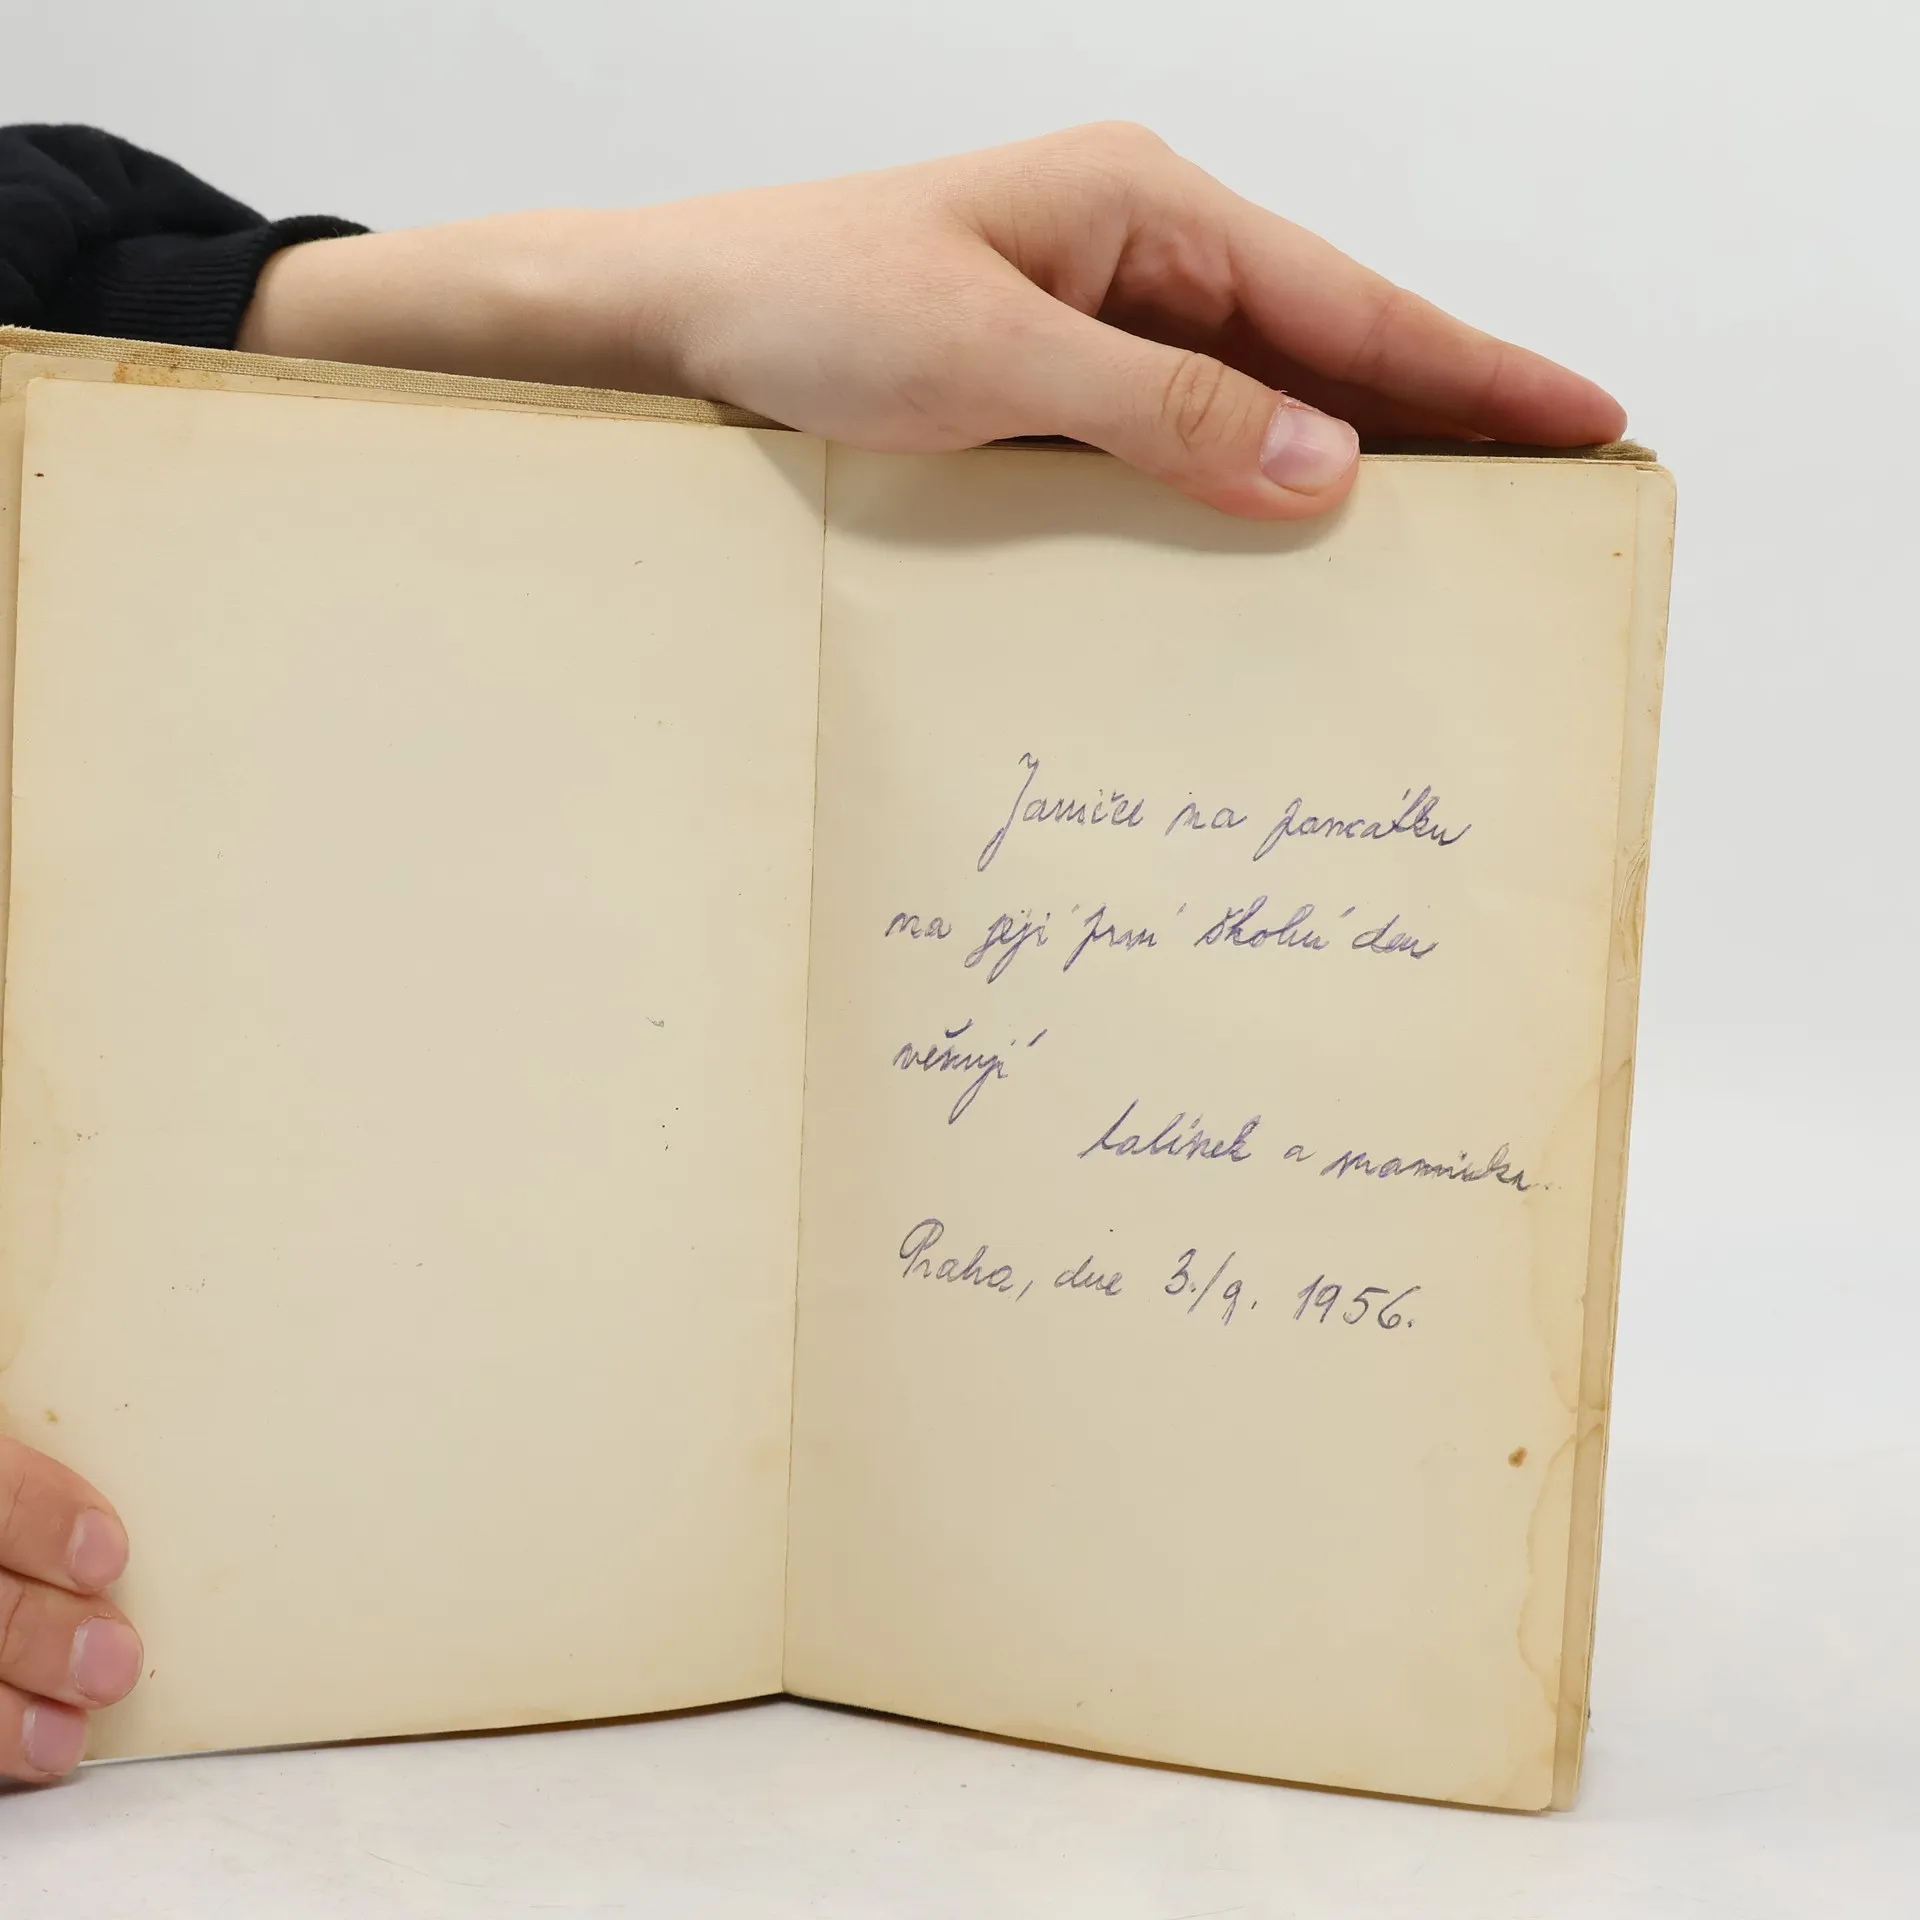 Janičce na památku
na její první školní den
věnují
tatínek a maminka.
Praha, dne 3./9. 1956.